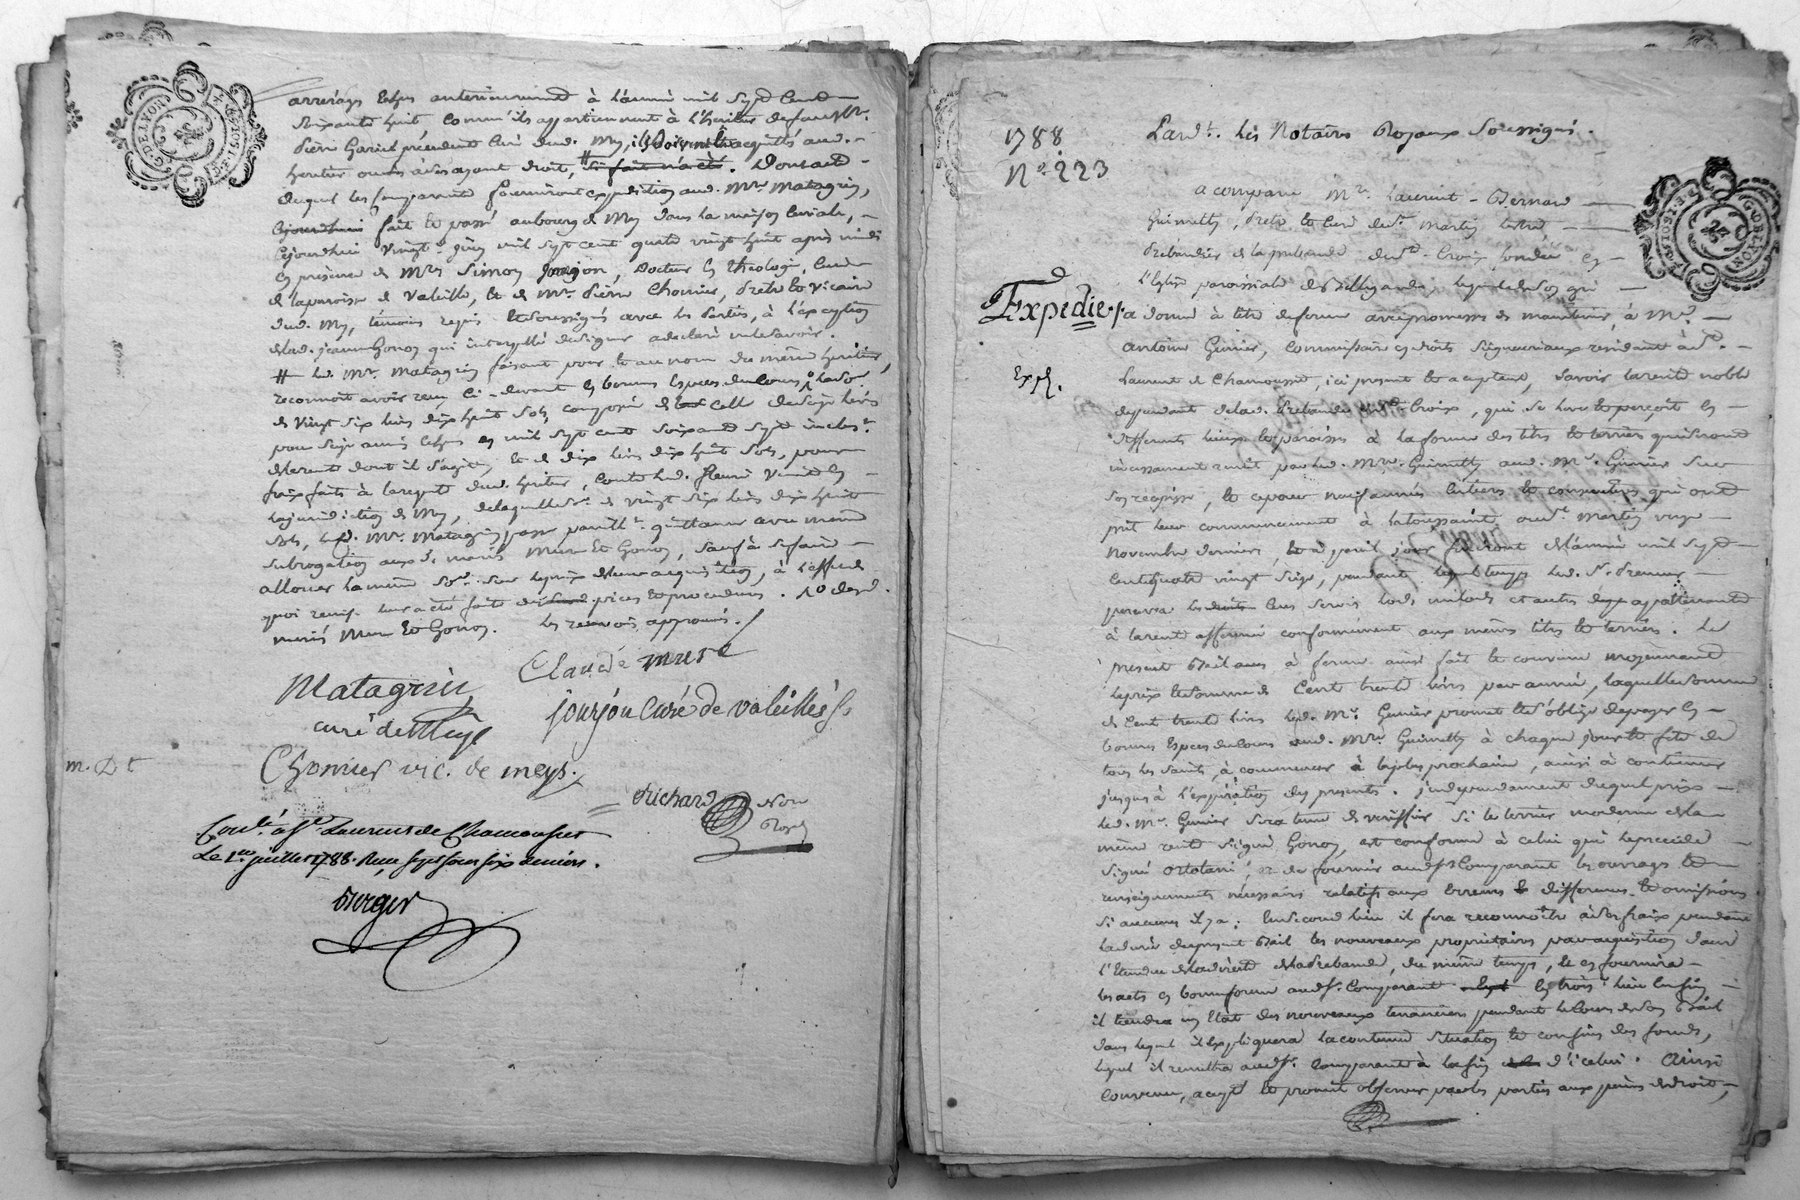 arrérages Echus anterieurement à l'année mil sept Cent
soixante huit Comm'ils appartiennent à l'heritier defau Mr.
pierre Curé dud. Mey, il Doivent acquittés aud.
heritier ou à ses ayant droit, si fait n'a été. Dont acte
duquel les Comparants fourniront expedition aud. Mre Matagrin,
Cejourdhui fait et passé au bourg de Mey dans la maison Curiale,
Cejourdhui vingt mil sept cent quatre vingt huit après midi
En présence de Mre Simon Jourjon, Docteur En theologie, Curé
de la paroisse de Valeille, et de Mre. pierre Chomier, prêtre et Vicaire
dud. Mey, témoins requis et soussignés avec les parties, à l'exception
de lad. jeanne Gonon qui interpellé de signer a declaré ne le savoir.
# led. Mre. Matagrin faisant pour et au nom du même heritier,
reconnoit avoir reçu Ci-devant En bonnes Especes du Cours la so.
de Vingt six livres dix huit sols, composée de Celle de seize livres
pour seize années Echues en mil sept cent soixante sept
de la rente dont il s'agit, et de dix livres dix huit sols, pour
frais faits à la requete dud. heritier, Contre led. fleuri En
la jurisdiction de Mey, de laquelle So. de vingt six livres dix huit
sols, led. Mre. Matagrin passe quittance avec même
subrogation aux d. mariés Mure Et Gonon, sauf à se faire
allouer la même So. sur le prix de leur acquisition, à l'effet de
quoi remise leur a été faite des pieces et procedures. 
mariés Mure Et Gonon. les renvois approuvés.
Matagrin Claude mure
curé de Meys jourjon Curé de valeilles
Chomier vic. de meys.
m. D t
Richard Not. Royal
Conlé. à St. Laurent de Chamousset
Le 1er juillet 1788. Reçu sept sous six deniers.
Berger
1788.
No. 223
Pardt. les Notaires Royaux Soussignés.
a comparu Mre. Laurent-Bernard
Guimetty, prêtre et Curé de St. Martin
Prebandier de la prebande de Ste Croix fondée En
l'Eglise paroissiale de , lequel de son gré
Expediée
a donné à titre de ferme avec promesse de maintenir, à Mr.
antoine Grivier, Commissaire En droits Seigneuriaux residant à St.
Exp.
Laurent de Chamousset, ici présent et acceptant, savoir la rente noble
dependante de lad. Prebande de Ste Croix, qui se lieve et perçoit En
differents lieux et paroisses à la forme des titres et terriers qui seront
incessamment remis par led. Mre. Guimetty aud. Mr. Grivier sur
son recepissé, et ce pour neuf années Entieres et consecutives qui ont
prit leur commencement à la toussaint ou St. Martin onze
novembre dernier, et à pareil jour finiront de l'année mil sept
cent quatre vingt seize, pendant lequel temps led. Sr. preneur
percevra les Cens servis lods, milods et autres droits appartenants
à la rente affermée conformément aux mêmes titres et terriers. Le
présent Bail aura à ferme ainsi fait et convenu moyennant
le prix et somme de Cent trente livres par année, laquelle somme
de Cent trente livres led. Mr. Grivier promet et s'oblige de payer En
bonnes Especes du Cours aud. Mre. Guimetty à chaque jour et fête de
tous les saints, à commencer à la plus prochaine, ainsi à continuer
jusqu'à l'expiration des presentes. independamment duquel prix
led. Mr. Grivier sera tenu de verifier si le terrier moderne de la
même rente signé Gonon, est conforme à celui qui le precede
signé ortolani, et de fournir aud. Sr Comparant les ouvrages et
renseignements nécessaires relatifs aux Erreurs différences et omissions
si aucunes il y a; En second lieu il fera reconnoître à ses frais pendant
la durée du présent Bail les nouveaux propriétaires par acquisition dans
l'Etendue de la directe de la Prebande, du même temps, et en fournira
les actes en bonne forme aud. Sr. Comparant En trois. lieu Enfin
il tiendra un Etat des nouveaux tenanciers pendant le Cours de son Bail
dans lequel il Expliquera la contenue situation et confins des fonds,
lequel il remettra aud. Sr. Comparant à la fin d'icelui. Ainsi
convenu, accepté et promit observer par les parties aux peines de droit,